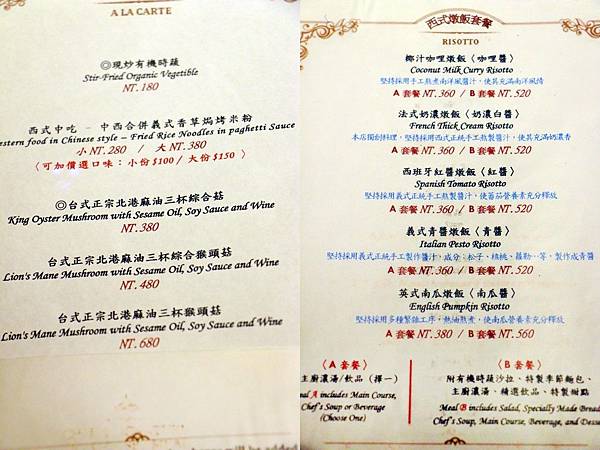 A LA CARTE
◎現炒有機時蔬
Stir-Fried Organic Vegetible
NT.180
西式中吃 – 中西合併義式香草焗烤米粉
estern food in Chinese style – Fried Rice Noodles in paghetti Sauce
小 NT.280 / 大 NT.380
〈可加價選口味：小份 $100 / 大份 $150 〉
◎台式正宗北港麻油三杯綜合菇
King Oyster Mushroom with Sesame Oil, Soy Sauce and Wine
NT.380
台式正宗北港麻油三杯綜合猴頭菇
Lion's Mane Mushroom with Sesame Oil, Soy Sauce and Wine
NT.480
台式正宗北港麻油三杯猴頭菇
Lion's Mane Mushroom with Sesame Oil, Soy Sauce and Wine
NT.680
西式燉飯套餐
RISOTTO
椰汁咖哩燉飯〈咖哩醬〉
Coconut Milk Curry Risotto
堅持採用手工熬煮南洋風醬汁，使其充滿南洋風情
A 套餐 NT.360 / B 套餐 NT.520
法式奶濃燉飯〈奶濃白醬〉
French Thick Cream Risotto
本店獨創料理，堅持採用西式正統手工熬製醬汁，使其充滿奶濃香
A 套餐 NT.360 / B 套餐 NT.520
西班牙紅醬燉飯〈紅醬〉
Spanish Tomato Risotto
堅持採用義式正統手工熬製醬汁，使蕃茄營養素充分釋放
A 套餐 NT.360 / B 套餐 NT.520
義式青醬燉飯〈青醬〉
Italian Pesto Risotto
堅持採用義式正統手工製作醬汁，成分：松子、核桃、蘿勒…等，製作成青醬
A 套餐 NT.360 / B 套餐 NT.520
英式南瓜燉飯〈南瓜醬〉
English Pumpkin Risotto
堅持採用多種繁雜工序，熱油熬煮，使南瓜營養素充分釋放
A 套餐 NT.380 / B 套餐 NT.560
〈A 套餐〉
主廚濃湯/飲品（擇一）
eal A includes Main Course,
Chef's Soup or Beverage
(Choose One)
〈B 套餐〉
附有機時蔬沙拉、特製季節麵包、
主廚濃湯、精選飲品、特製甜點
Meal B includes Salad, Specially Made Bread
Chef's Soup, Main Course, Beverage, and Desse